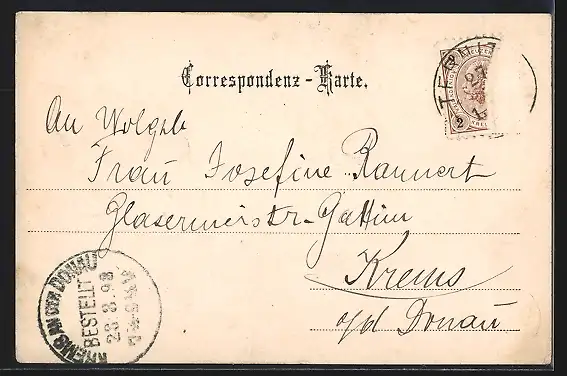 Correspondenz-Karte.
2
An Wolgeb
Frau Josefine Rannert
Glasermeistr-Gattin
Krems
a/d Donau
KREMS AN DER DONAU
BESTELLT
23 8.98